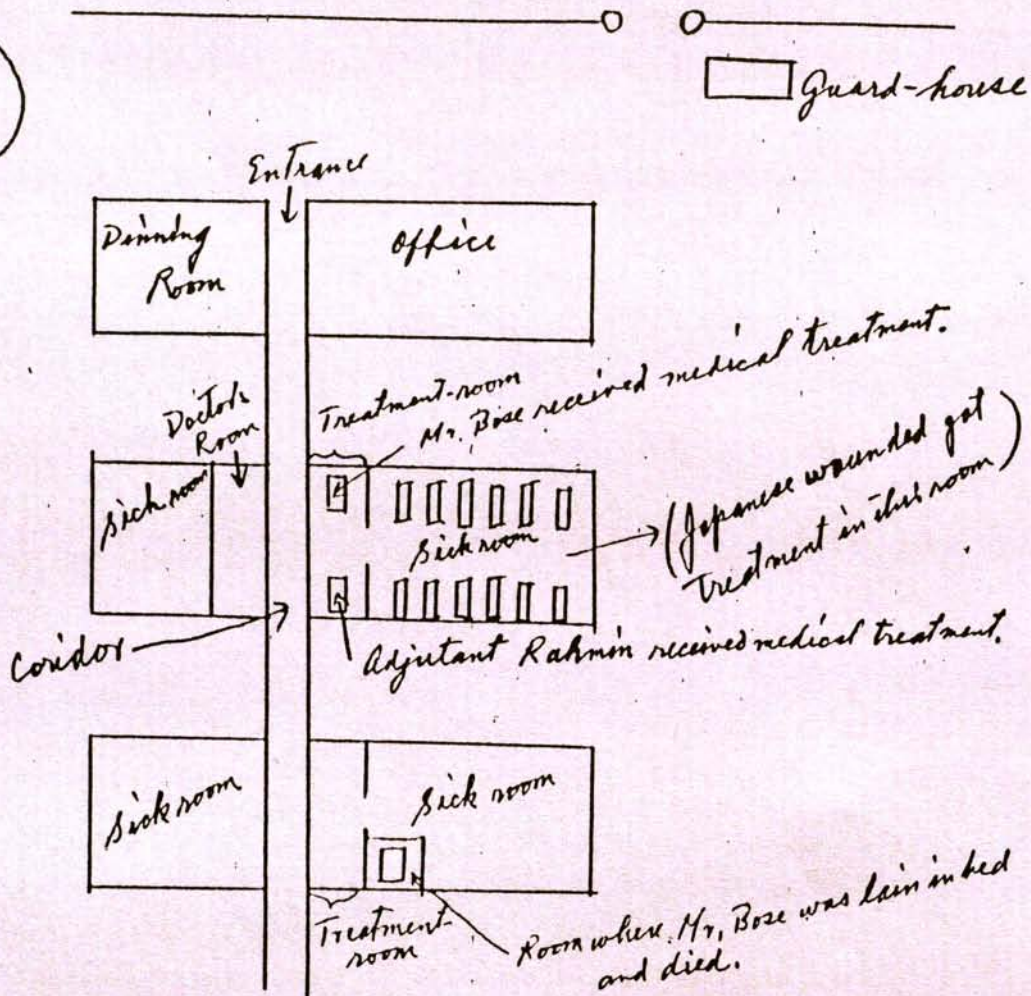 Guard-house
Entrance
Dinning
Room
Office
Doctor's
Room
Treatment-room
Mr. Bose received medical treatment.
Sick room
Sick room
(Japanese wounded got
treatment in this room)
Coridor
Adjutant Rahmin received medical treatment.
Sick room
Sick room
Treatment-
room
Room where, Mr, Bose was lain in bed
and died.